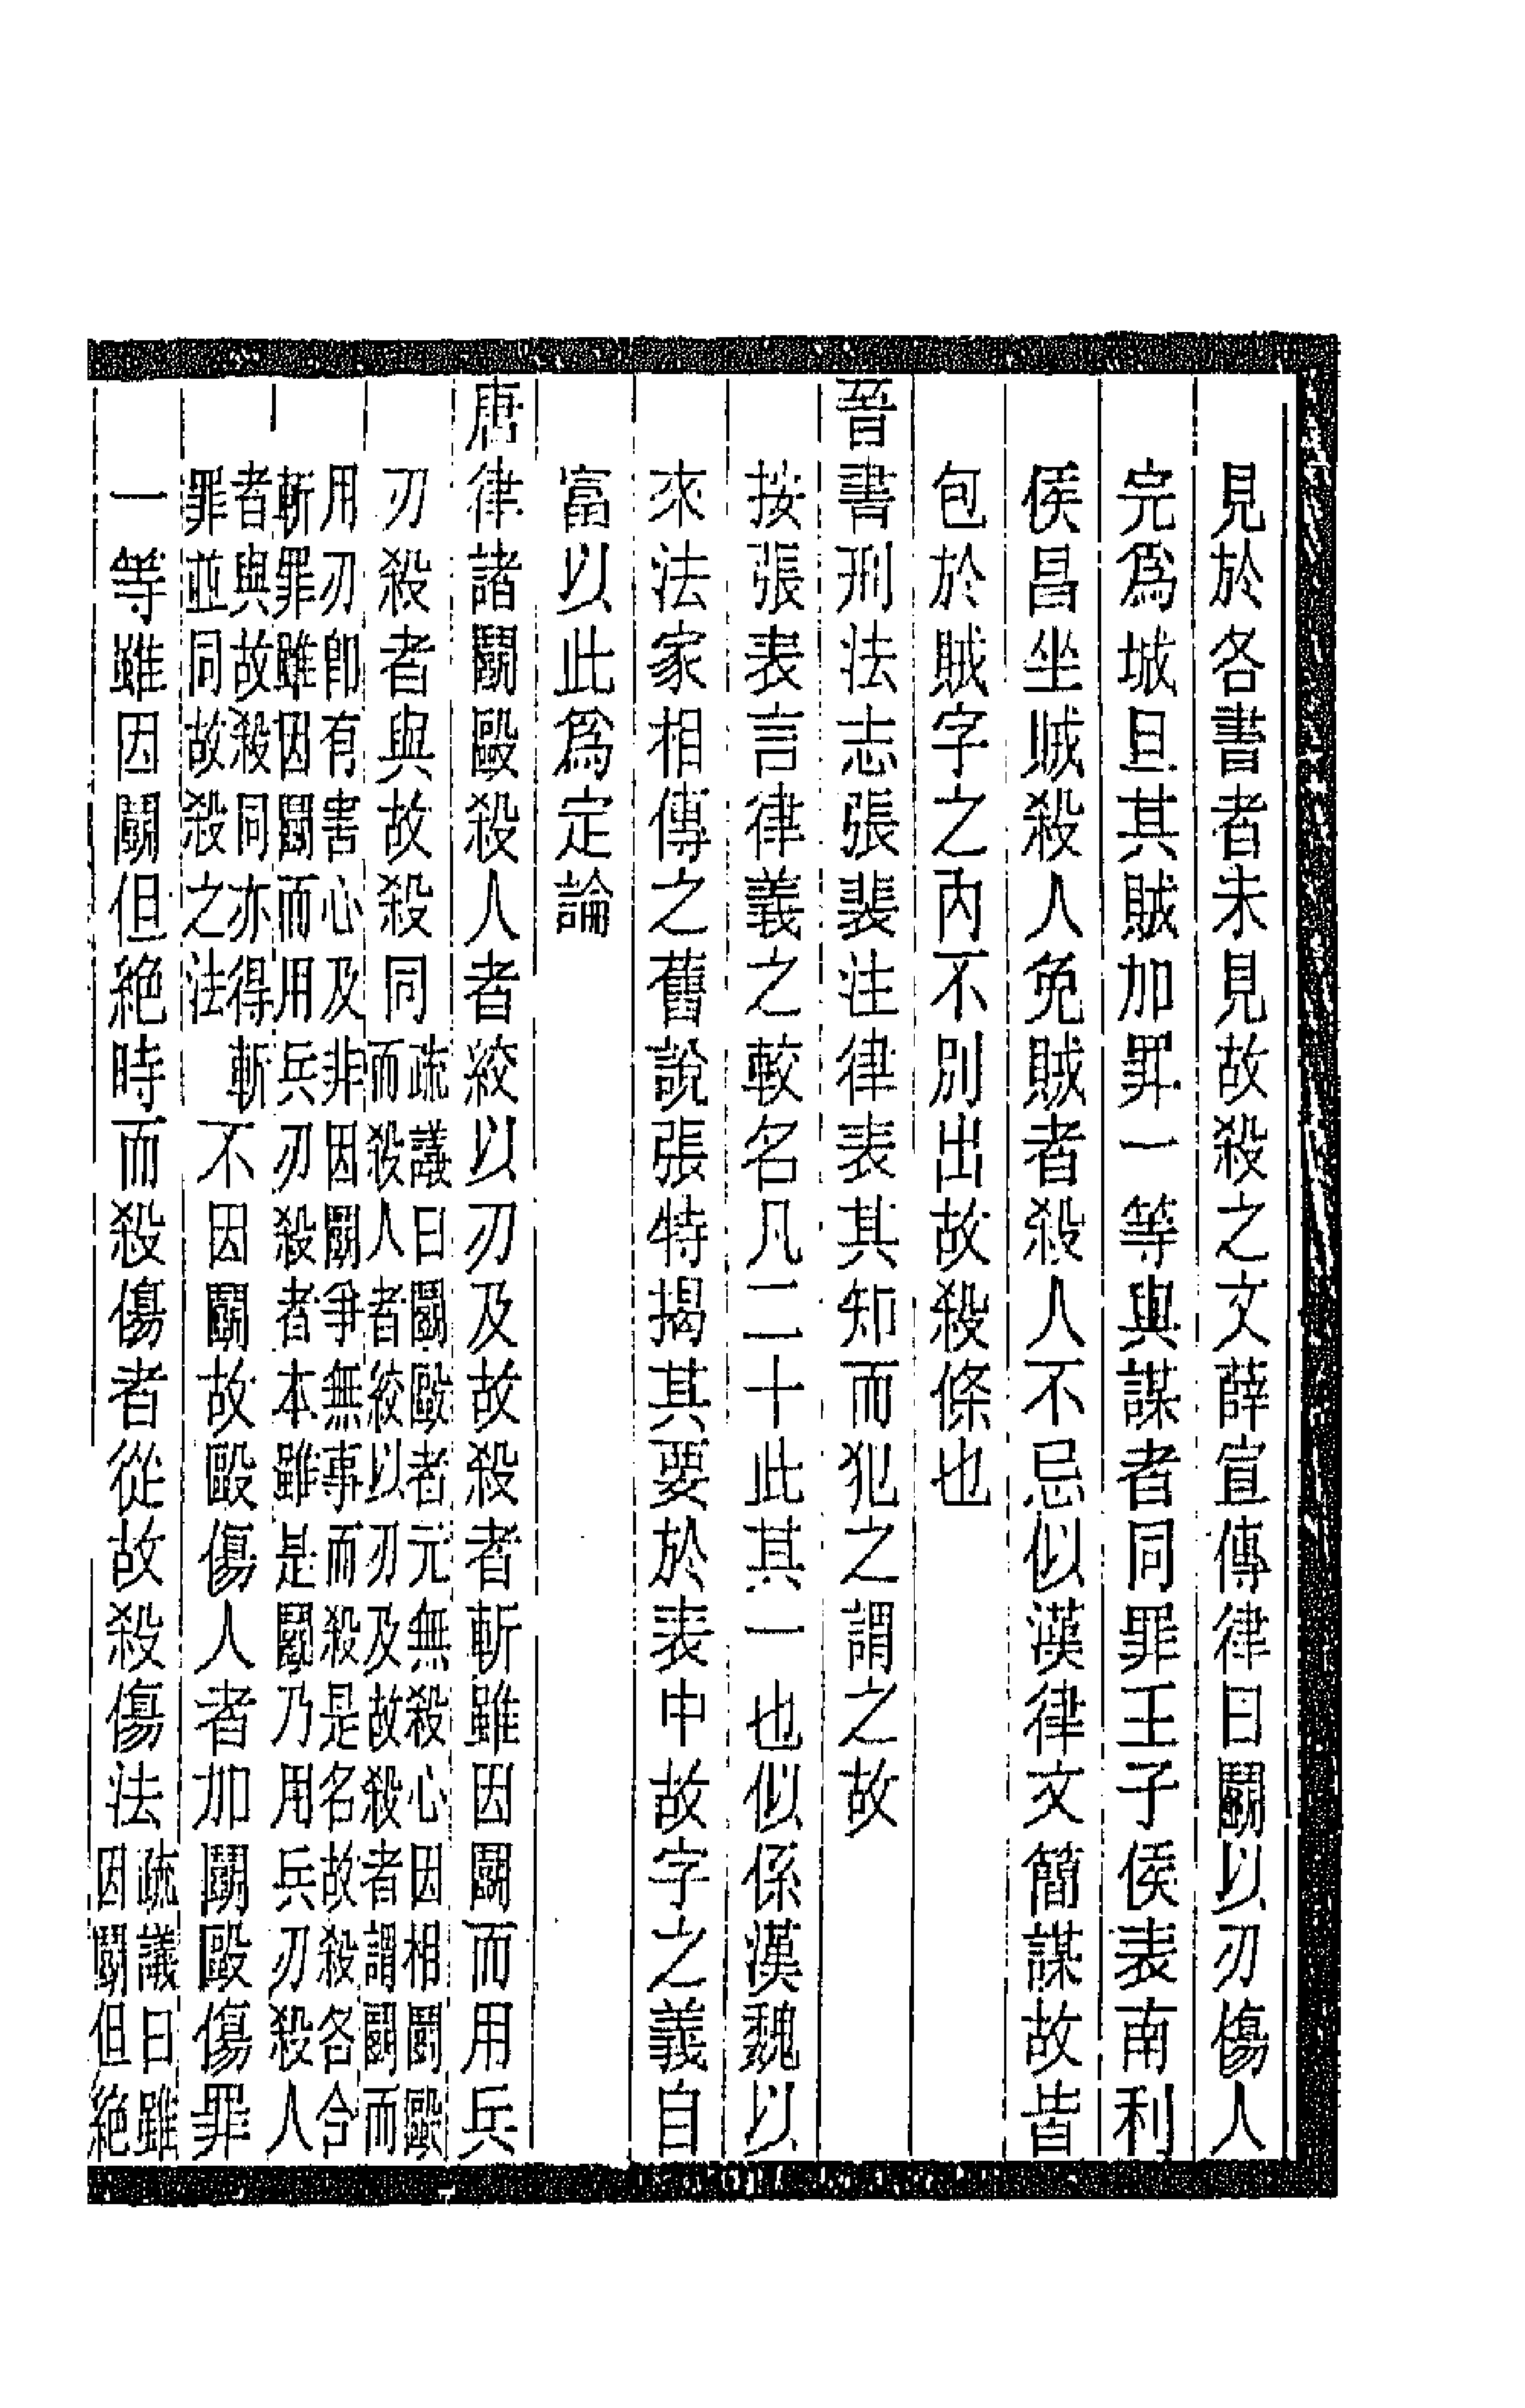 見於各書者未見故殺之文薛宣傳律曰鬭以刃傷人
完爲城旦其賊加罪一等與謀者同罪王子侯表南利
侯昌坐賊殺人免賊者殺人不忌似漢律文簡謀故皆
包於賊字之內不別出故殺條也
晉書刑法志張裴注律表其知而犯之謂之故
按張表言律義之較名凡二十此其一也似係漢魏以
來法家相傳之舊說張特揭其要於表中故字之義自
當以此爲定論
唐律諸鬭毆殺人者絞以刃及故殺者斬雖因鬭而用兵
刃殺者與故殺同
疏議曰鬭毆者元無殺心因相鬭毆
而殺人者絞以刃及故殺者謂鬭而
用刃卽有害心及非因鬭爭無事而殺是名故殺各合
斬罪雖因鬭而用兵刃殺者本雖是鬭乃用兵刃殺人
者與故殺同亦得斬
罪並同故殺之法
不因鬭故毆傷人者加鬭毆傷罪
一等雖因鬭但絕時而殺傷者從故殺傷法
疏議曰雖
因鬭但絕